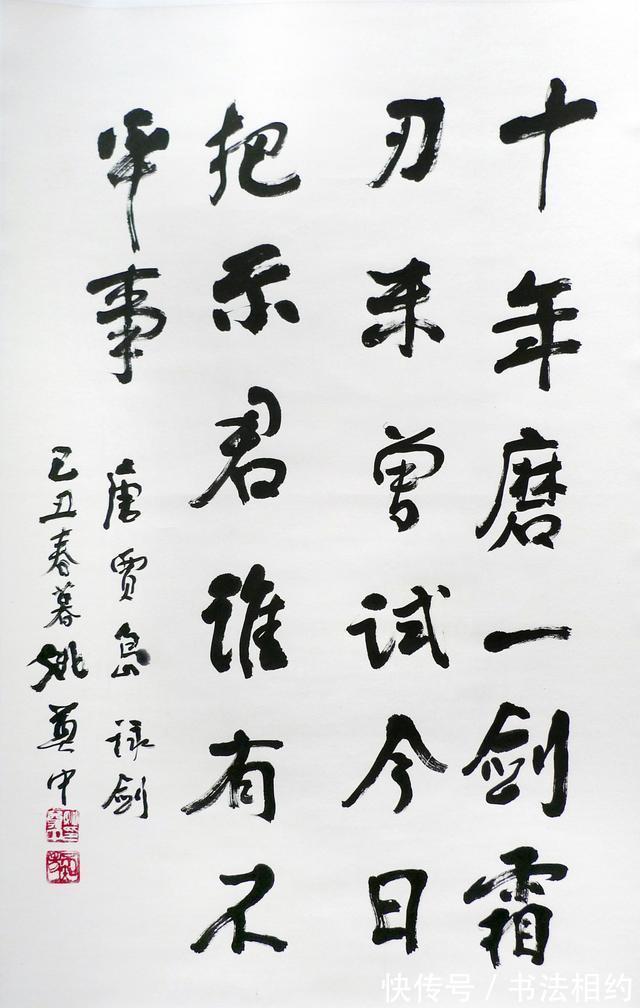 十年磨一剑霜
刃未曾试今日
把示君谁有不
平事
唐贾岛咏剑
己丑春暮姚奠中
快传号/书法相约